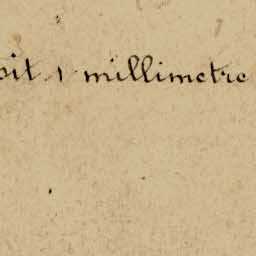 oit 1 millimetre